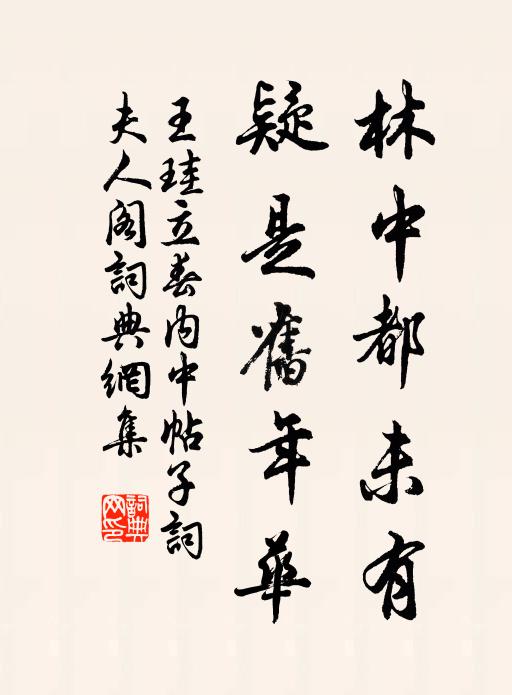 林中都未有
疑是舊年華
王珪立春内中帖子詞
夫人阁詞典網集
詞典網印